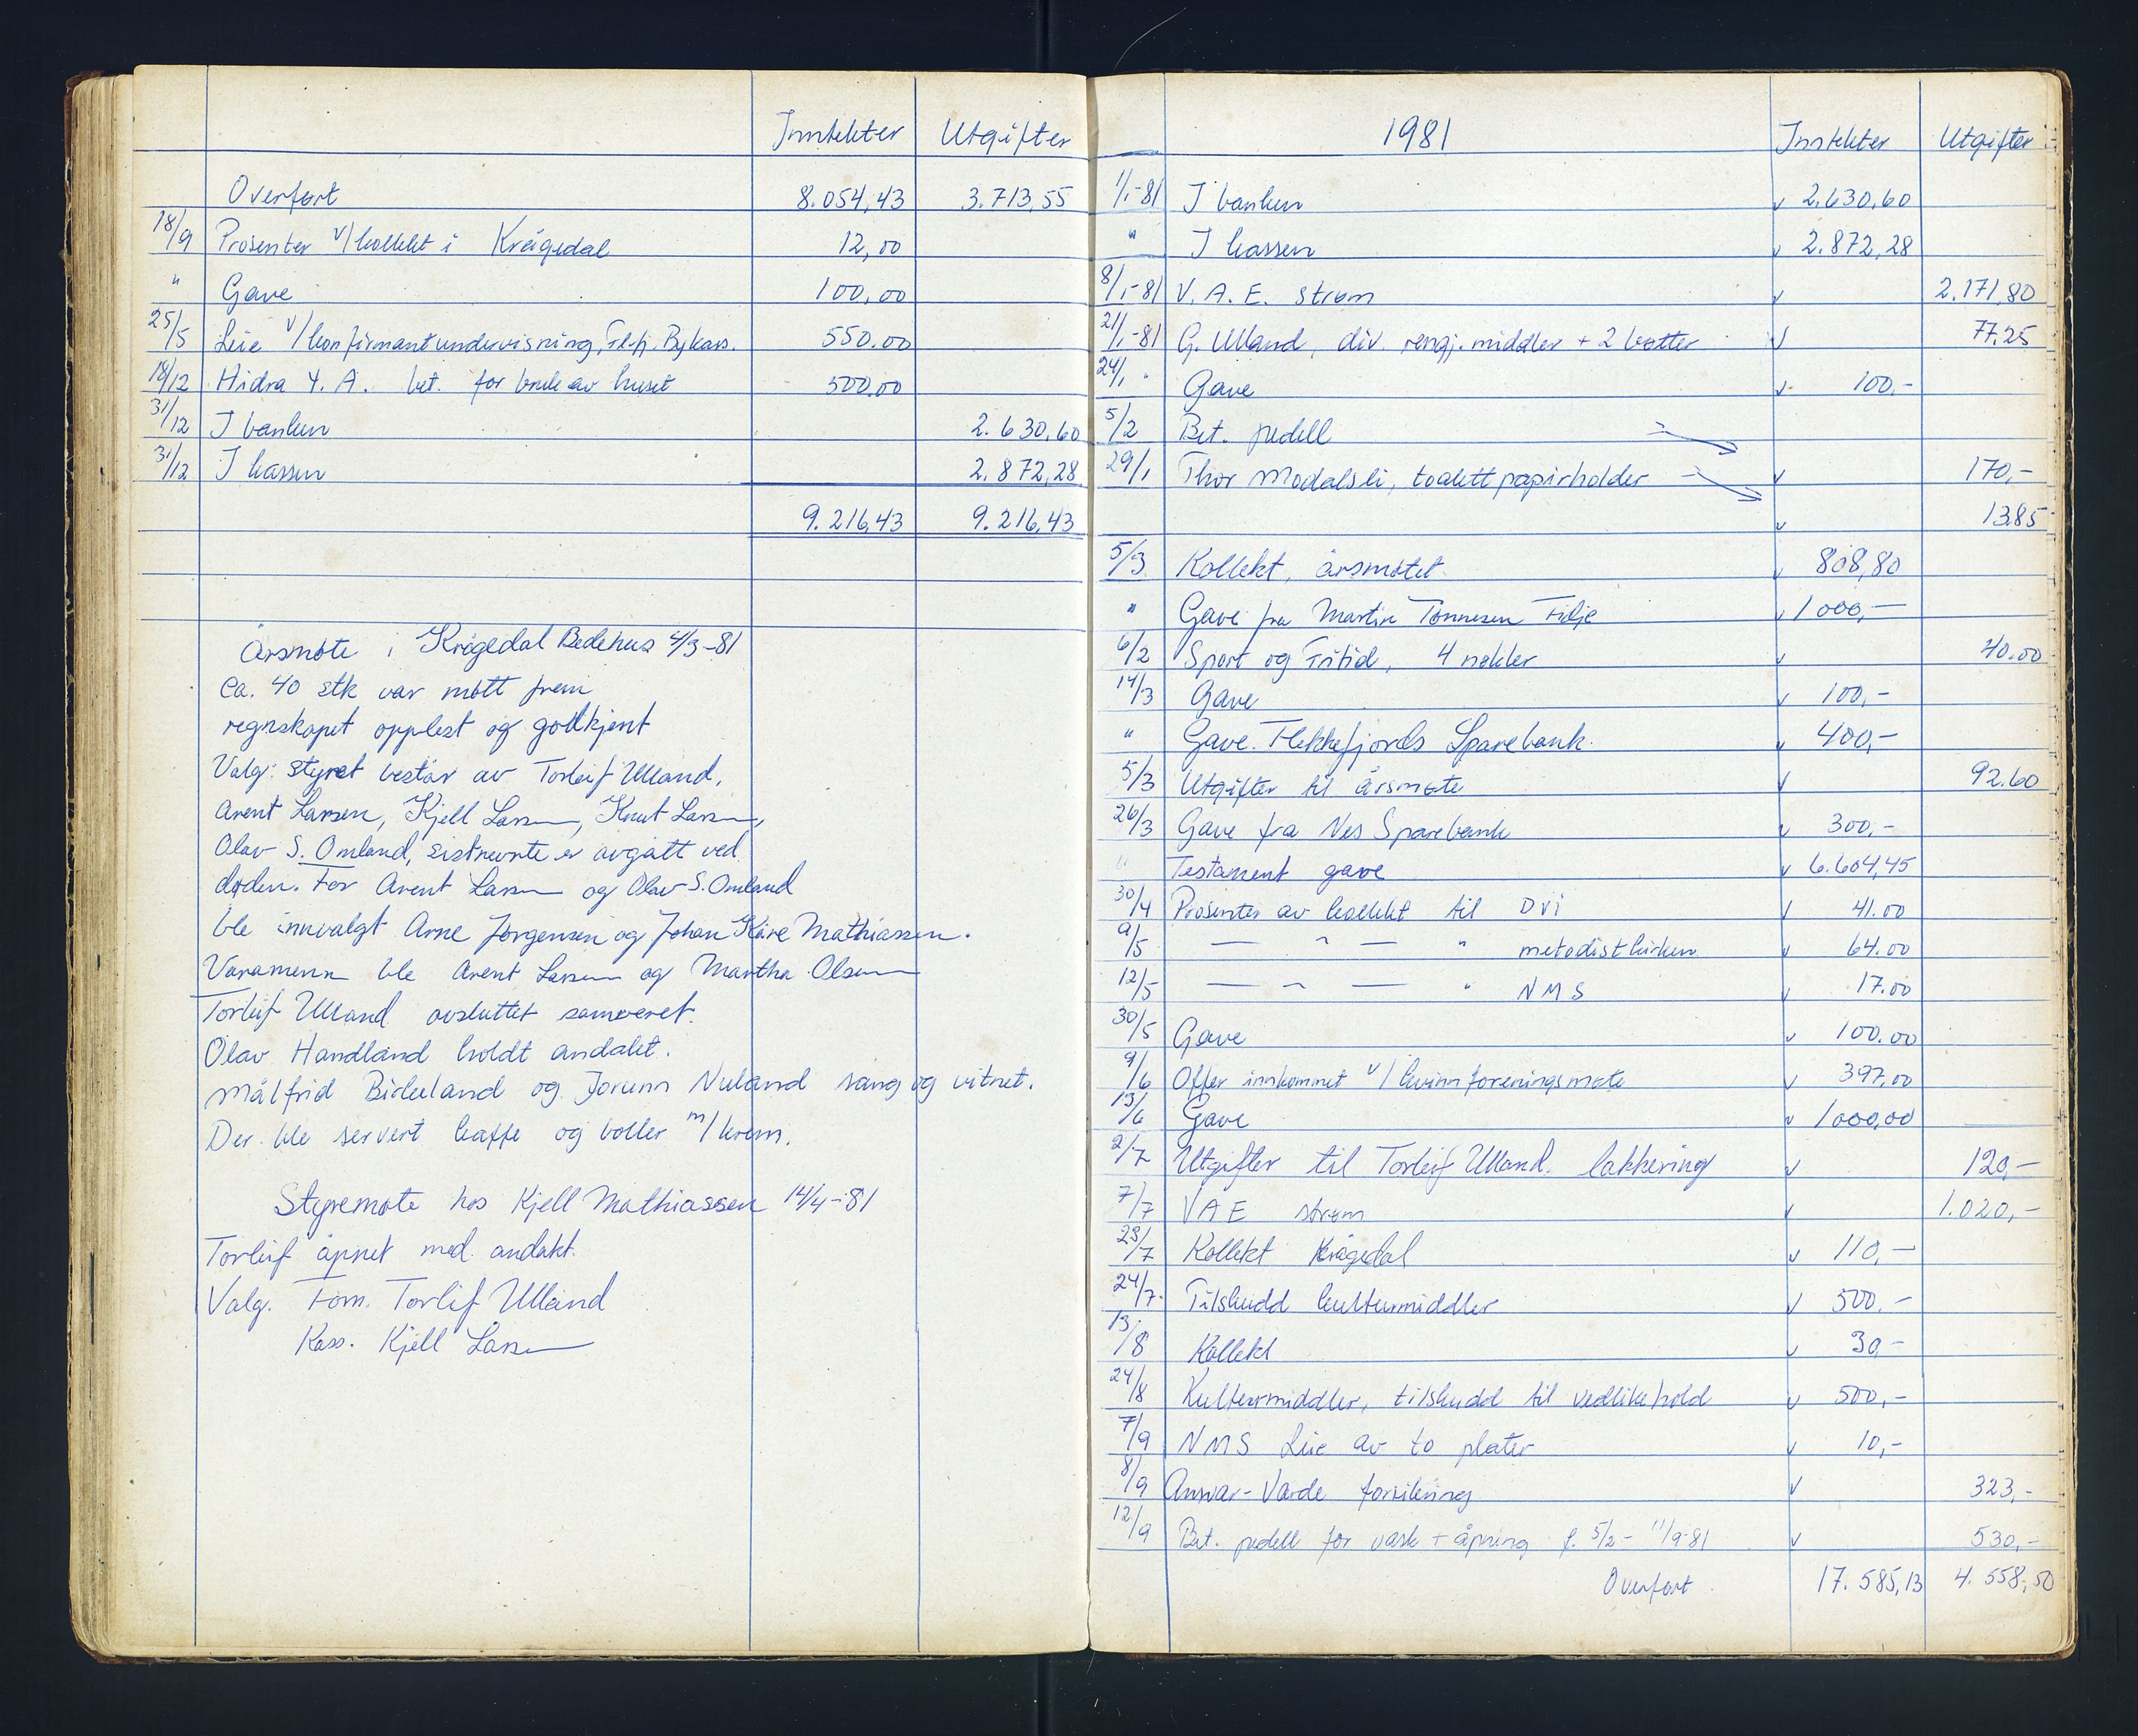 Inntekter Utgifter
Overført 8.054,43 3.713,55
18/9 Prosenter v/kollekt i Krågedal 12,00
" Gave 100,00
25/5 Leie v/konfirmantundervisning, Flekkefj. Bykass. 550.00
18/12 Hidra Y. A. bet. for bruk av huset 500.00
31/12 I banken 2.630,60
31/12 I kassen 2.872,28
9.216,43 9.216,43
Årsmøte i Krågedal Bedehus 4/3-81
Ca. 40 stk var møtt frem
regnskapet opplest og godkjent
Valg: styret består av Torleif Ulland,
Arent Larsen, Kjell Larsen, Knut Larsen,
Olav S. Omland, sistnevnte er avgått ved
døden. For Arent Larsen og Olav S. Omland
ble innvalgt Arne Jørgensen og Johan Kåre Mathiassen.
Varamenn ble Arent Larsen og Martha Olsen
Torleif Ulland avsluttet samværet.
Olav Handland holdt andakt.
Målfrid Birkeland og Jorunn Nuland sang og vitnet.
Der ble servert kaffe og boller m/krem.
Styremøte hos Kjell Mathiassen 14/4-81
Torleif åpnet med andakt.
Valg. Form. Torleif Ulland
Kass. Kjell Larsen
1981 Inntekter Utgifter
1/1-81 I banken v 2.630,60
" I kassen v 2.872,28
8/1-81 V.A.E. strøm v 2.171,80
21/1-81 G. Ulland, div. rengj. midler + 2 bøtter v 77.25
24/1 " Gave v 100,-
5/2 Bet. pedell
29/1 Thor Modalsli, toalettpapirholder v 170,-
v 13.85
5/3 Kollekt, årsmøtet v 808,80
" Gave fra Martin Tønnesen Filje v 1000,-
6/2 Sport og Fritid, 4 nøkler v 40.00
14/3 Gave v 100,-
" Gave. Flekkefjords Sparebank. v 400,-
5/3 Utgifter til årsmøte v 92.60
26/3 Gave fra Nes Sparebank v 300,-
" Testament gave v 6.604,45
30/4 Prosenter av kollekt til DVI v 41.00
9/5 — " — " metodistkirken v 64.00
12/5 — " — " NMS v 17.00
30/5 Gave v 100.00
9/6 Offer innkommet v/kvinneforeningsmøte v 397,00
13/6 Gave v 1000,00
2/7 Utgifter til Torleif Ulland. lakkering v 120,-
7/7 VAE strøm v 1.020,-
23/7 Kollekt Krågedal v 110,-
24/7. Tilskudd kulturmiddler v 500.-
13/8 Kollekt v 30,-
24/8 Kulturmiddler, tilskudd til vedlikehold v 500,-
7/9 NMS Leie av to plater v 10,-
8/9 Ansvar-Varde forsikring v 323,-
12/9 Bet. pedell for vask + åpning f. 5/2 - 11/9-81 v 530,-
Overført 17.585,13 4.558,50